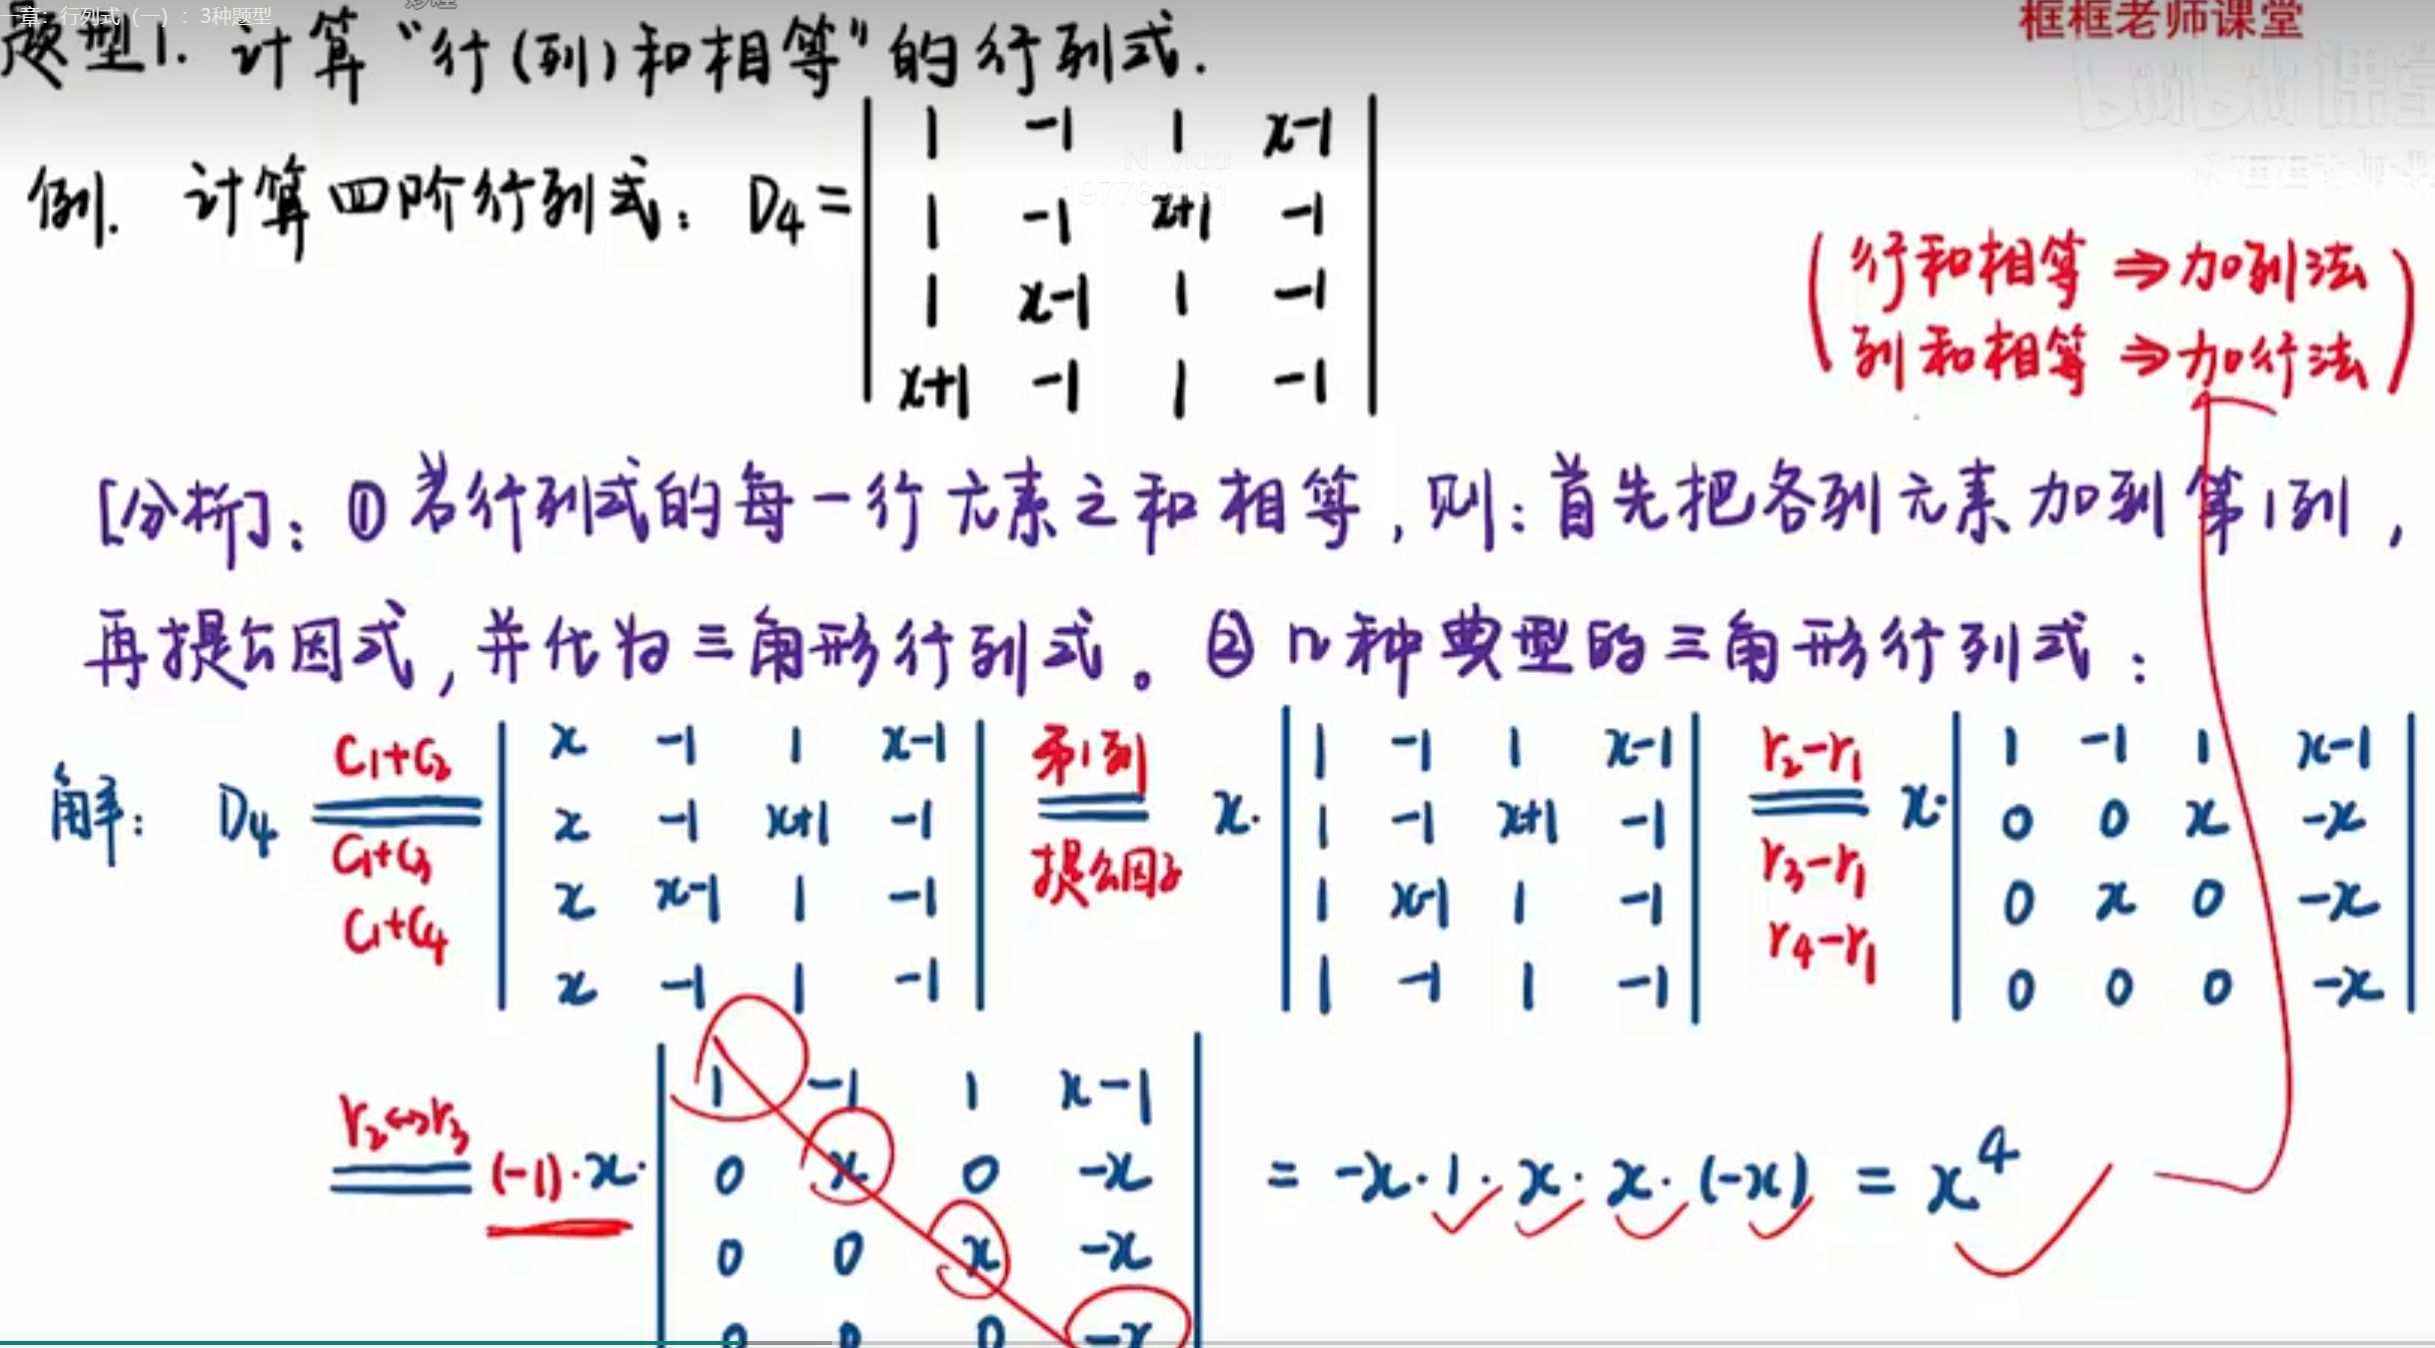 一章：行列式（一）：3种题型
框框老师课堂
题型1. 计算“行(列)和相等”的行列式.
bilibili课堂
例. 计算四阶行列式： D₄ =
1 -1 1 x-1
1 -1 x+1 -1
1 x-1 1 -1
x+1 -1 1 -1
(行和相等 ⇒ 加列法
列和相等 ⇒ 加行法)
[分析]：① 若行列式的每一行元素之和相等，则：首先把各列元素加到第1列，
再提公因式，并化为三角形行列式。② 几种典型的三角形行列式：
解： D₄
C₁+C₂
C₁+C₃
C₁+C₄
x -1 1 x-1
x -1 x+1 -1
x x-1 1 -1
x -1 1 -1
第1列
提公因子
x·
1 -1 1 x-1
1 -1 x+1 -1
1 x-1 1 -1
1 -1 1 -1
r₂-r₁
r₃-r₁
r₄-r₁
x·
1 -1 1 x-1
0 0 x -x
0 x 0 -x
0 0 0 -x
r₂↔r₃
(-1)·x·
1 -1 1 x-1
0 x 0 -x
0 0 x -x
0 0 0 -x
= -x·1·x·x·(-x) = x⁴